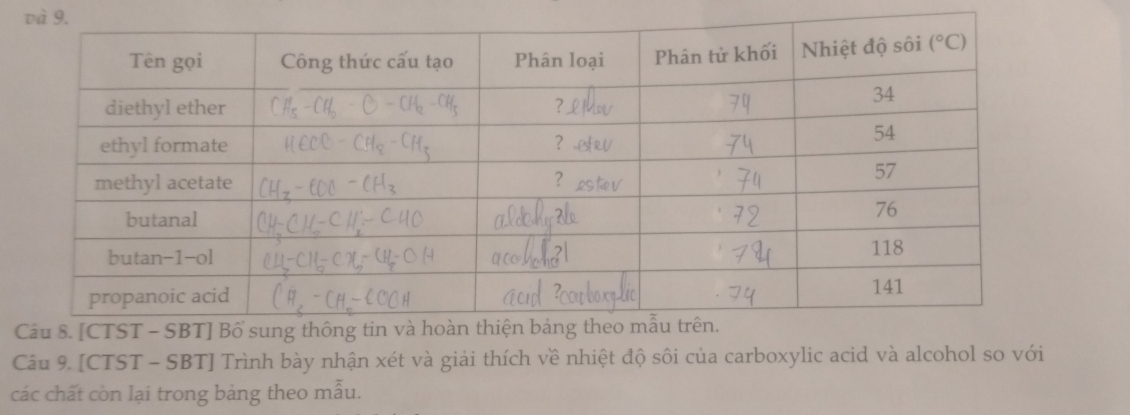 và 9.
Tên gọi Công thức cấu tạo Phân loại Phân tử khối Nhiệt độ sôi (°C)
diethyl ether CH₃-CH₂-O-CH₂-CH₃ ? ether 74 34
ethyl formate HCOO-CH₂-CH₃ ? ester 74 54
methyl acetate CH₃-COO-CH₃ ? ester 74 57
butanal CH₃-CH₂-CH₂-CHO aldehyde ? 72 76
butan-1-ol CH₃-CH₂-CH₂-CH₂-OH ? 74 118
propanoic acid CH₃-CH₂-COOH acid ? carboxylic 74 141
Câu 8. [CTST – SBT] Bổ sung thông tin và hoàn thiện bảng theo mẫu trên.
Câu 9. [CTST – SBT] Trình bày nhận xét và giải thích về nhiệt độ sôi của carboxylic acid và alcohol so với
các chất còn lại trong bảng theo mẫu.